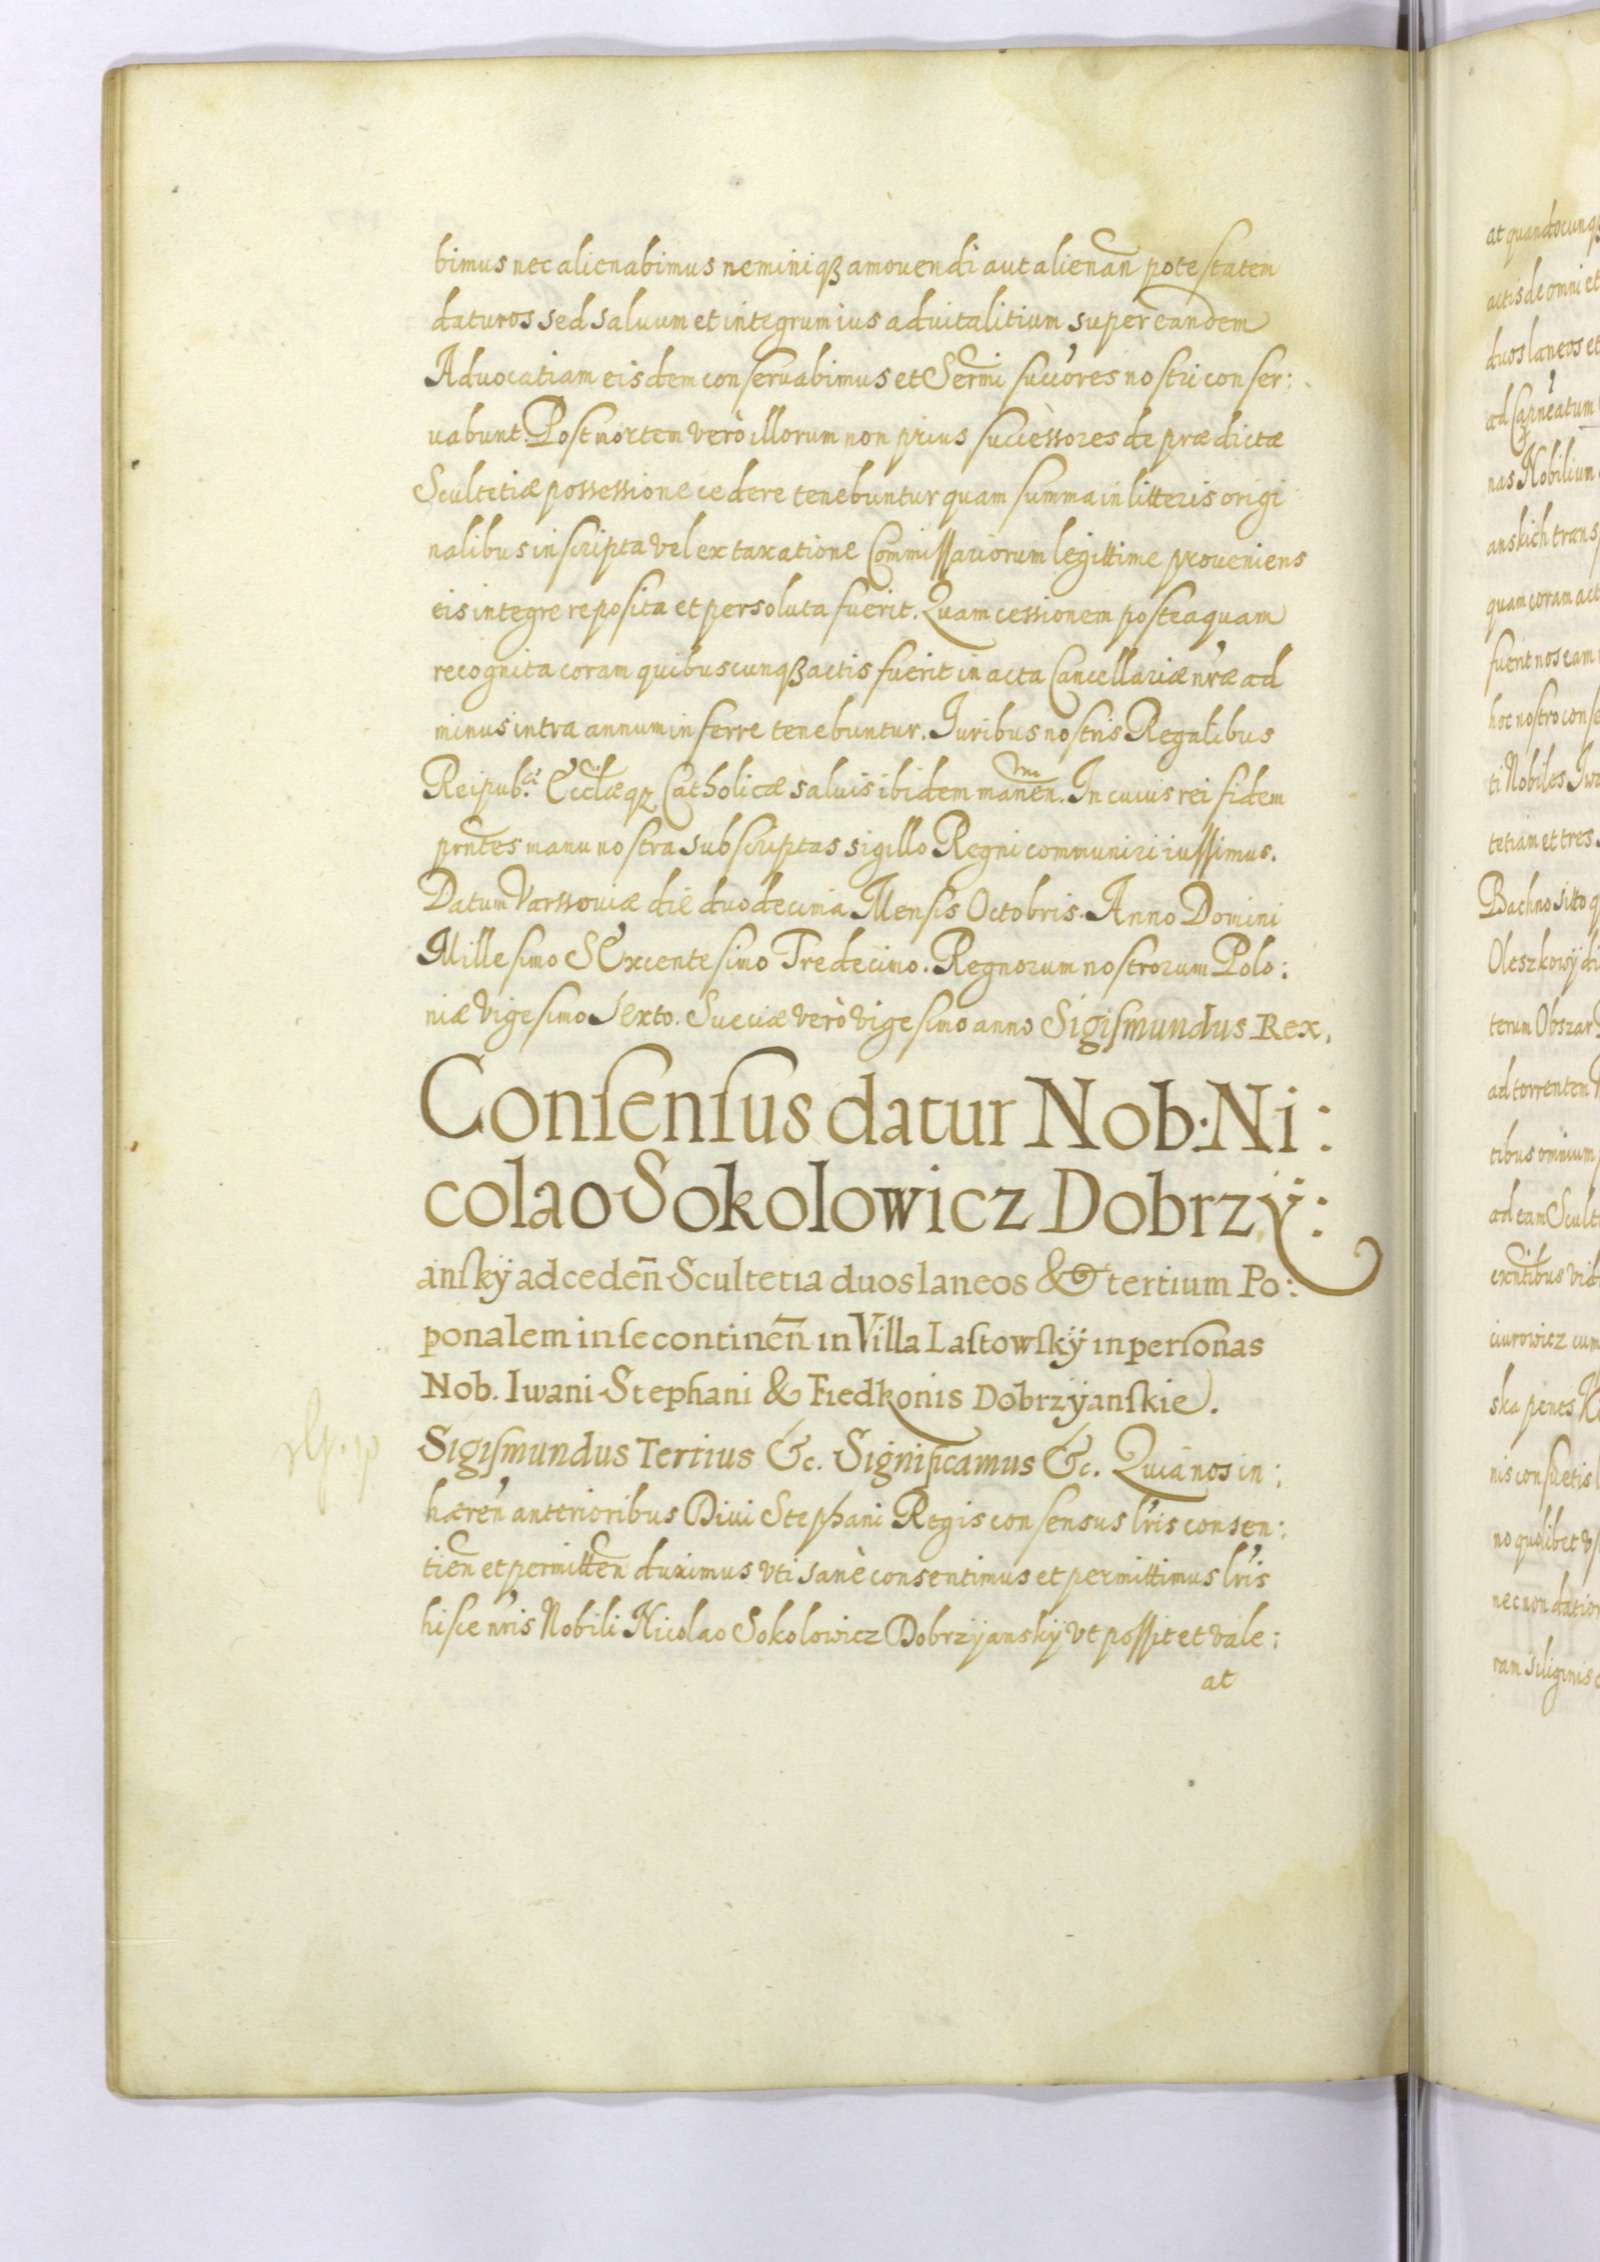 bimus nec alienabimus neminiqꝫ amovendi aut alienan̄ potestatem
daturos sed salvum et integrum ius advitalitium super eandem
Advocatiam eisdem conservabimus et Sermi succ'ores nostri conser:
vabunt. Post mortem verò illorum non prius successores de prædictæ
Scultetiæ possessione cedere tenebuntur quam summa in litteris origi
nalibus inscripta vel ex taxatione Commissariorum legittime proveniens
eis integre reposita et persoluta fuerit. Quam cessionem posteaquam
recognita coram quibuscunqꝫ actis fuerit in acta Cancellariæ nr'æ ad
minus intra annum inferre tenebuntur. Iuribus nostris Regalibus
Reipub:cæ Eccl'æqꝫ Catholicæ salvis ibidem manen̄. In cuius rei fidem
pn̄tes manu nostra subscriptas sigillo Regni communiri iussimus.
Datum Varssoviæ die duodecima Mensis Octobris. Anno Domini
Millesimo SExcentesimo Tredecimo. Regnorum nostrorum Polo:
niæ Vigesimo Sexto. Sueciæ verò vigesimo anno Sigiſmundus Rex.
Conſenſus datur Nob. Ni:
colao Sokolowicz Dobrzÿ:
anſkÿ ad ceden̄ Scultetia duos laneos & tertium Po:
ponalem in ſe continen̄ in Villa Laſtowſkÿ in perſonas
Nob. Iwani Stephani & Fiedkonis Dobrzÿanſkie.
Sigiſmundus Tertius &c. Significamus &c. Quia nos in:
hæren̄ anterioribus Divi Stephani Regis consensus lr'is consen:
tien̄ et permitten̄ duximus vti sanè consentimus et permittimus lr'is
hisce nr'is Nobili Nicolao Sokolowicz Dobrzÿanskÿ vt possit et vale:
at
at quandocunqꝫ
actis de omni et
duos laneos et
nas Nobilium
anskich trans
quam coram act
fuerit nos eam
hoc nostro conse
ti Nobiles Iwa
tetiam et tres
Bachno sitto q
Oleszkowÿ di
terum Obszar
ad torrentem
tibus omnium
ad eam Scult
ciurowicz cum
ska penes
nis consuetis
no quolibet
nec non datio
ram siliginis